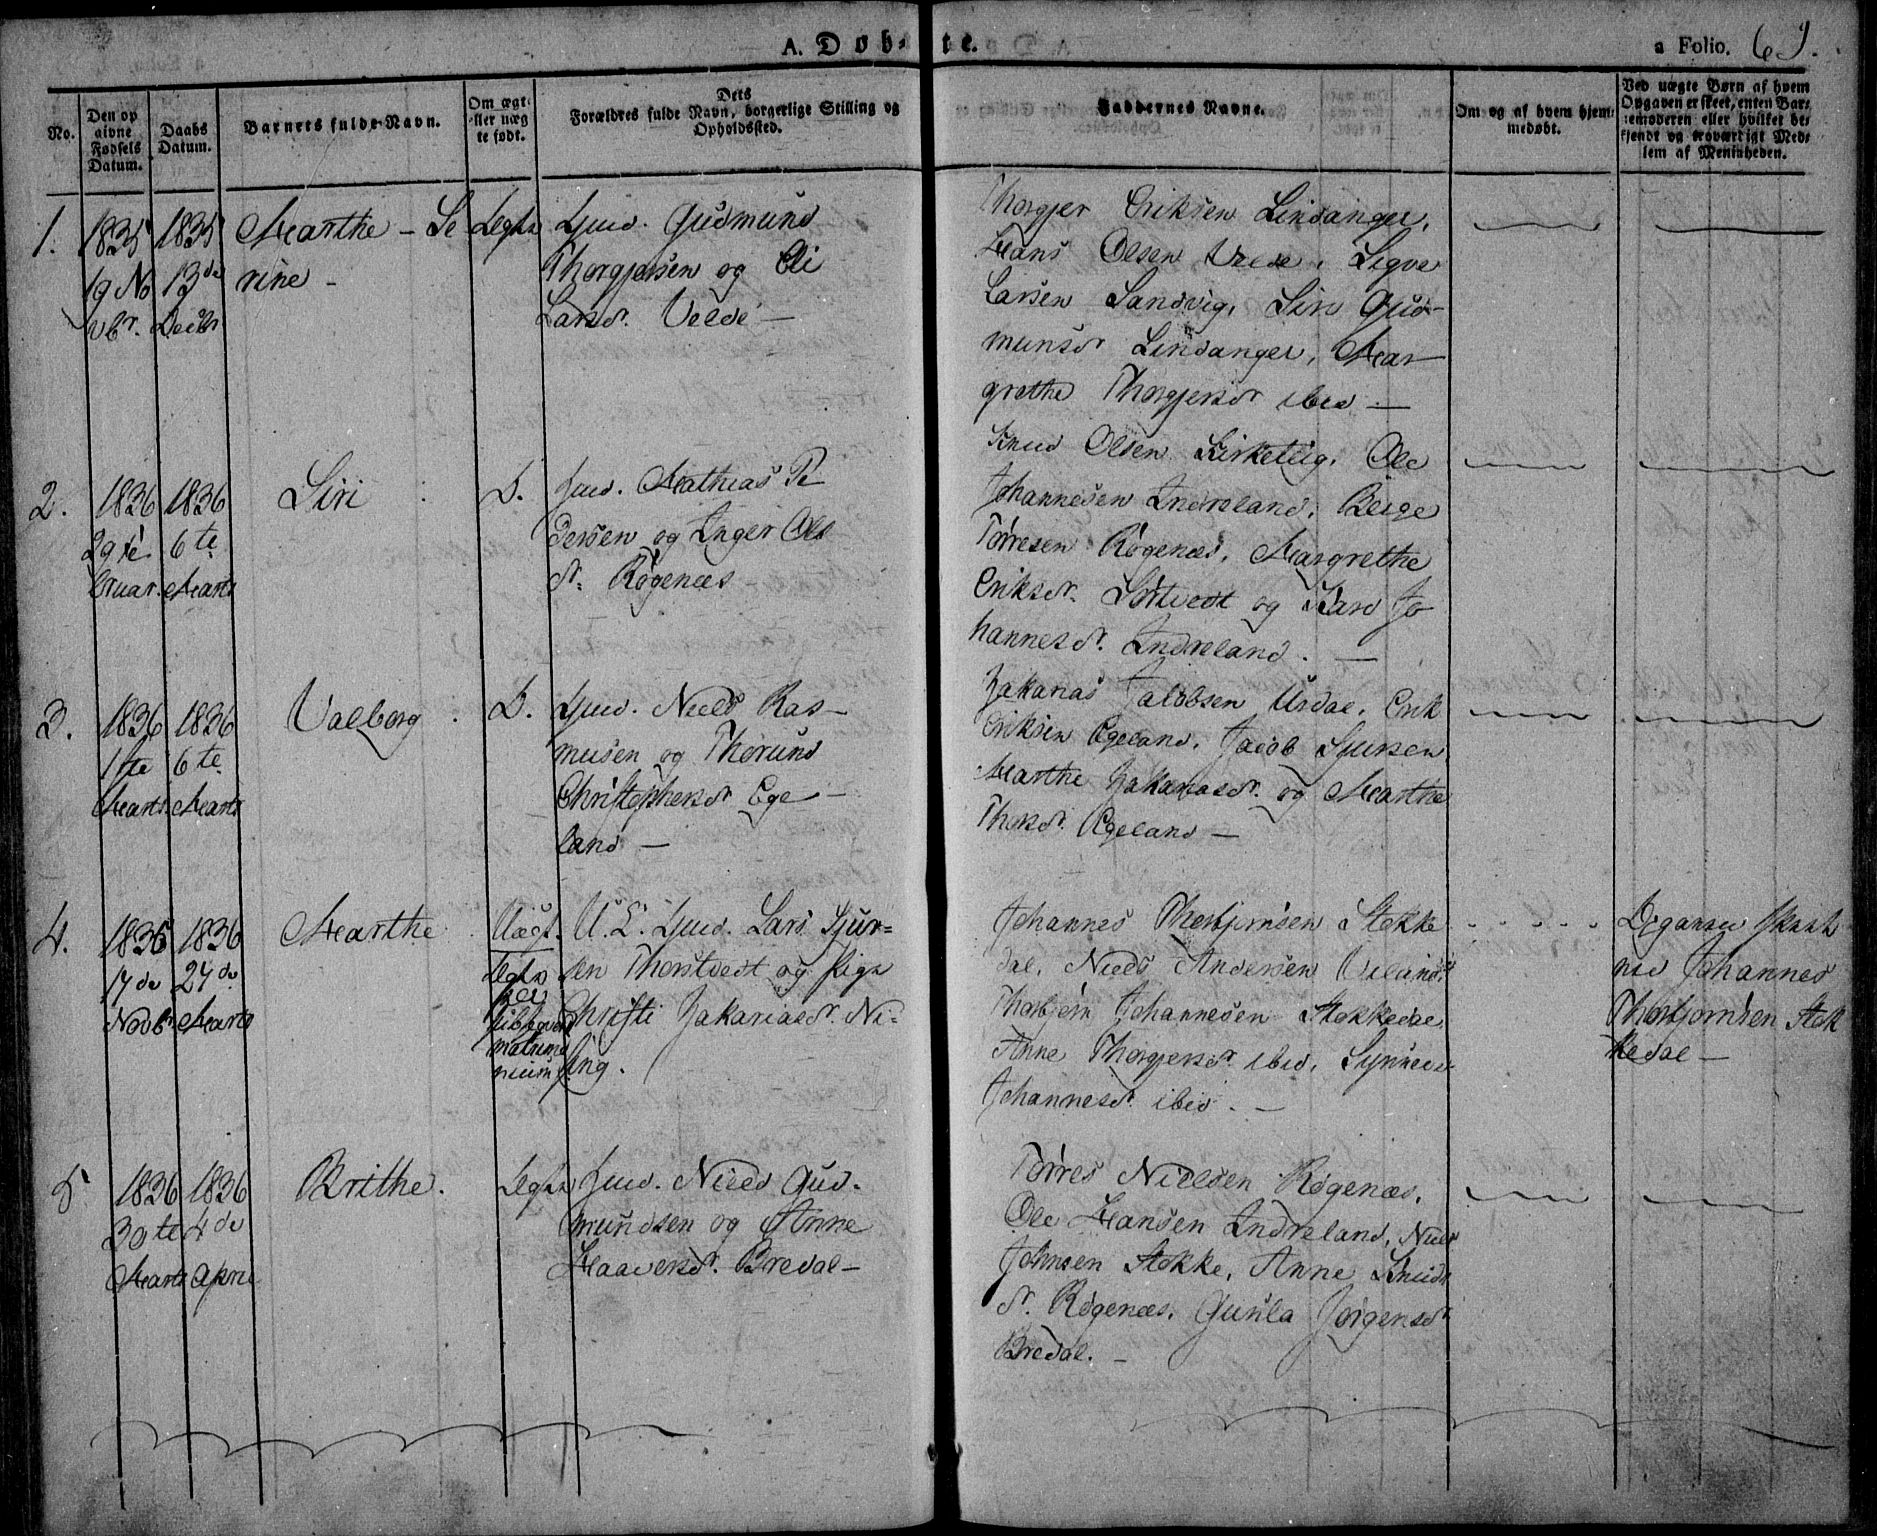 A. Døb-
te.
a Folio. 69.
No.
Den op
givne
Fødsels
Datum.
Daabs
Datum.
Barnets fulde Navn.
Om ægt-
eller uæg
te født.
Dets
Forældres fulde Navn, borgerlige Stilling og
Opholdssted.
Faddernes Navne.
Om og af hvem hjem-
medøbt.
Ved uægte Børn af hvem
Opgaven er skeet, enten Bar-
nemoderen eller hvilket be-
kjendt og troværdigt Med-
lem af Menigheden.
1.
1835
19 No
vbr.
1835
13de
Decbr
Marthe - Se
rine -
Legts
Gmd. Gudmund
Thorgjersen og Eli
Larsdr. Velde -
Thorgjer Eriksen Lindanger,
Hans Olsen , Sigve
Larsen Sandvig, Siri Gud-
munsdr Lindanger, Mar
grethe Thorgjersdr ibid -
2.
1836
29 Fe
bruar.
1836
6te
Marts
Siri
L.
Gmd. Mathias Pe
dersen og Inger Ols
dr. Røgenæs -
Knud Olsen Kirketeig, Ole
Johannesen Indreland, Berge
Tørresen Røgenæs, Margrethe
Eriksdr. Sørtvedt og Kari Jo
hannesdr. Indreland. -
3.
1836
1ste
Marts
1836
6te
Marts
Valborg
L.
Gmd. Niels Ras-
musen og Thorund
Christophersdr Ege
land -
Zakarias Jakobsen Urdal, Erik
Eriksen Egeland, Jacob Sjursen
Marthe Zakariasdr. og Marthe
Thorsdr. Egeland -
4.
1835
17de
Novbr
1836
27de
Marts
Marthe
Uægt.
Legts
per
subseqvens
matrimo
nium
U. E. Gmd. Lars Sjur-
sen Thorstvedt og Pige
Christi Zakariasdr. Ni-
sing.
Johannes Thorbjørnsen Stokke
dal, Niels Andersen
Thorbjørn Johannesen Stokkedal,
Anne Thorgjersdr ibid, Synneve
Johannesdr. ibid. -
Opgaven skeet
ved Johannes
Thorbjørnsen Stok
kedal -
5
1836
30te
Marts
1836
4de
April
Brithe.
Legts
Gmd. Niels Gud-
mundsen og Anne
Haaversdr. Bredal -
Tørres Nielsen Røgenæs,
Ole Hansen Indreland, Niels
Johnsen Stokke, Anne Knuds
dr. Røgenæs, Gunla Jørgensdr
Bredal. -